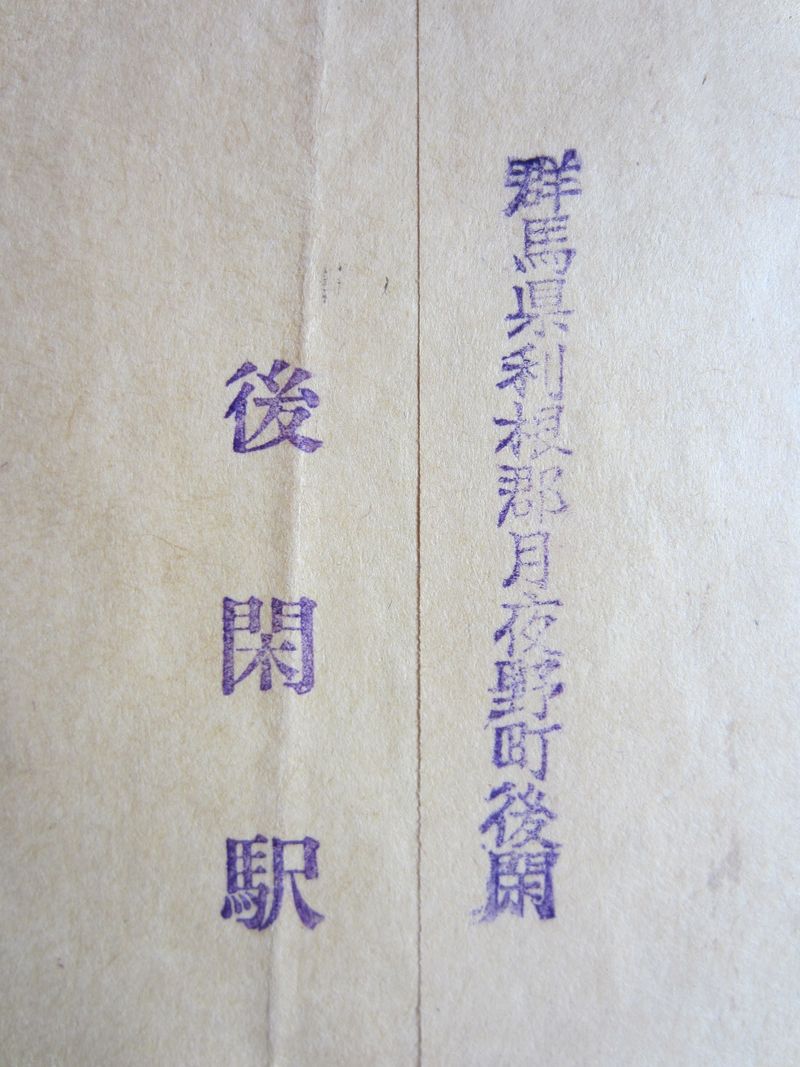 群馬県利根郡月夜野町後閑
後閑駅